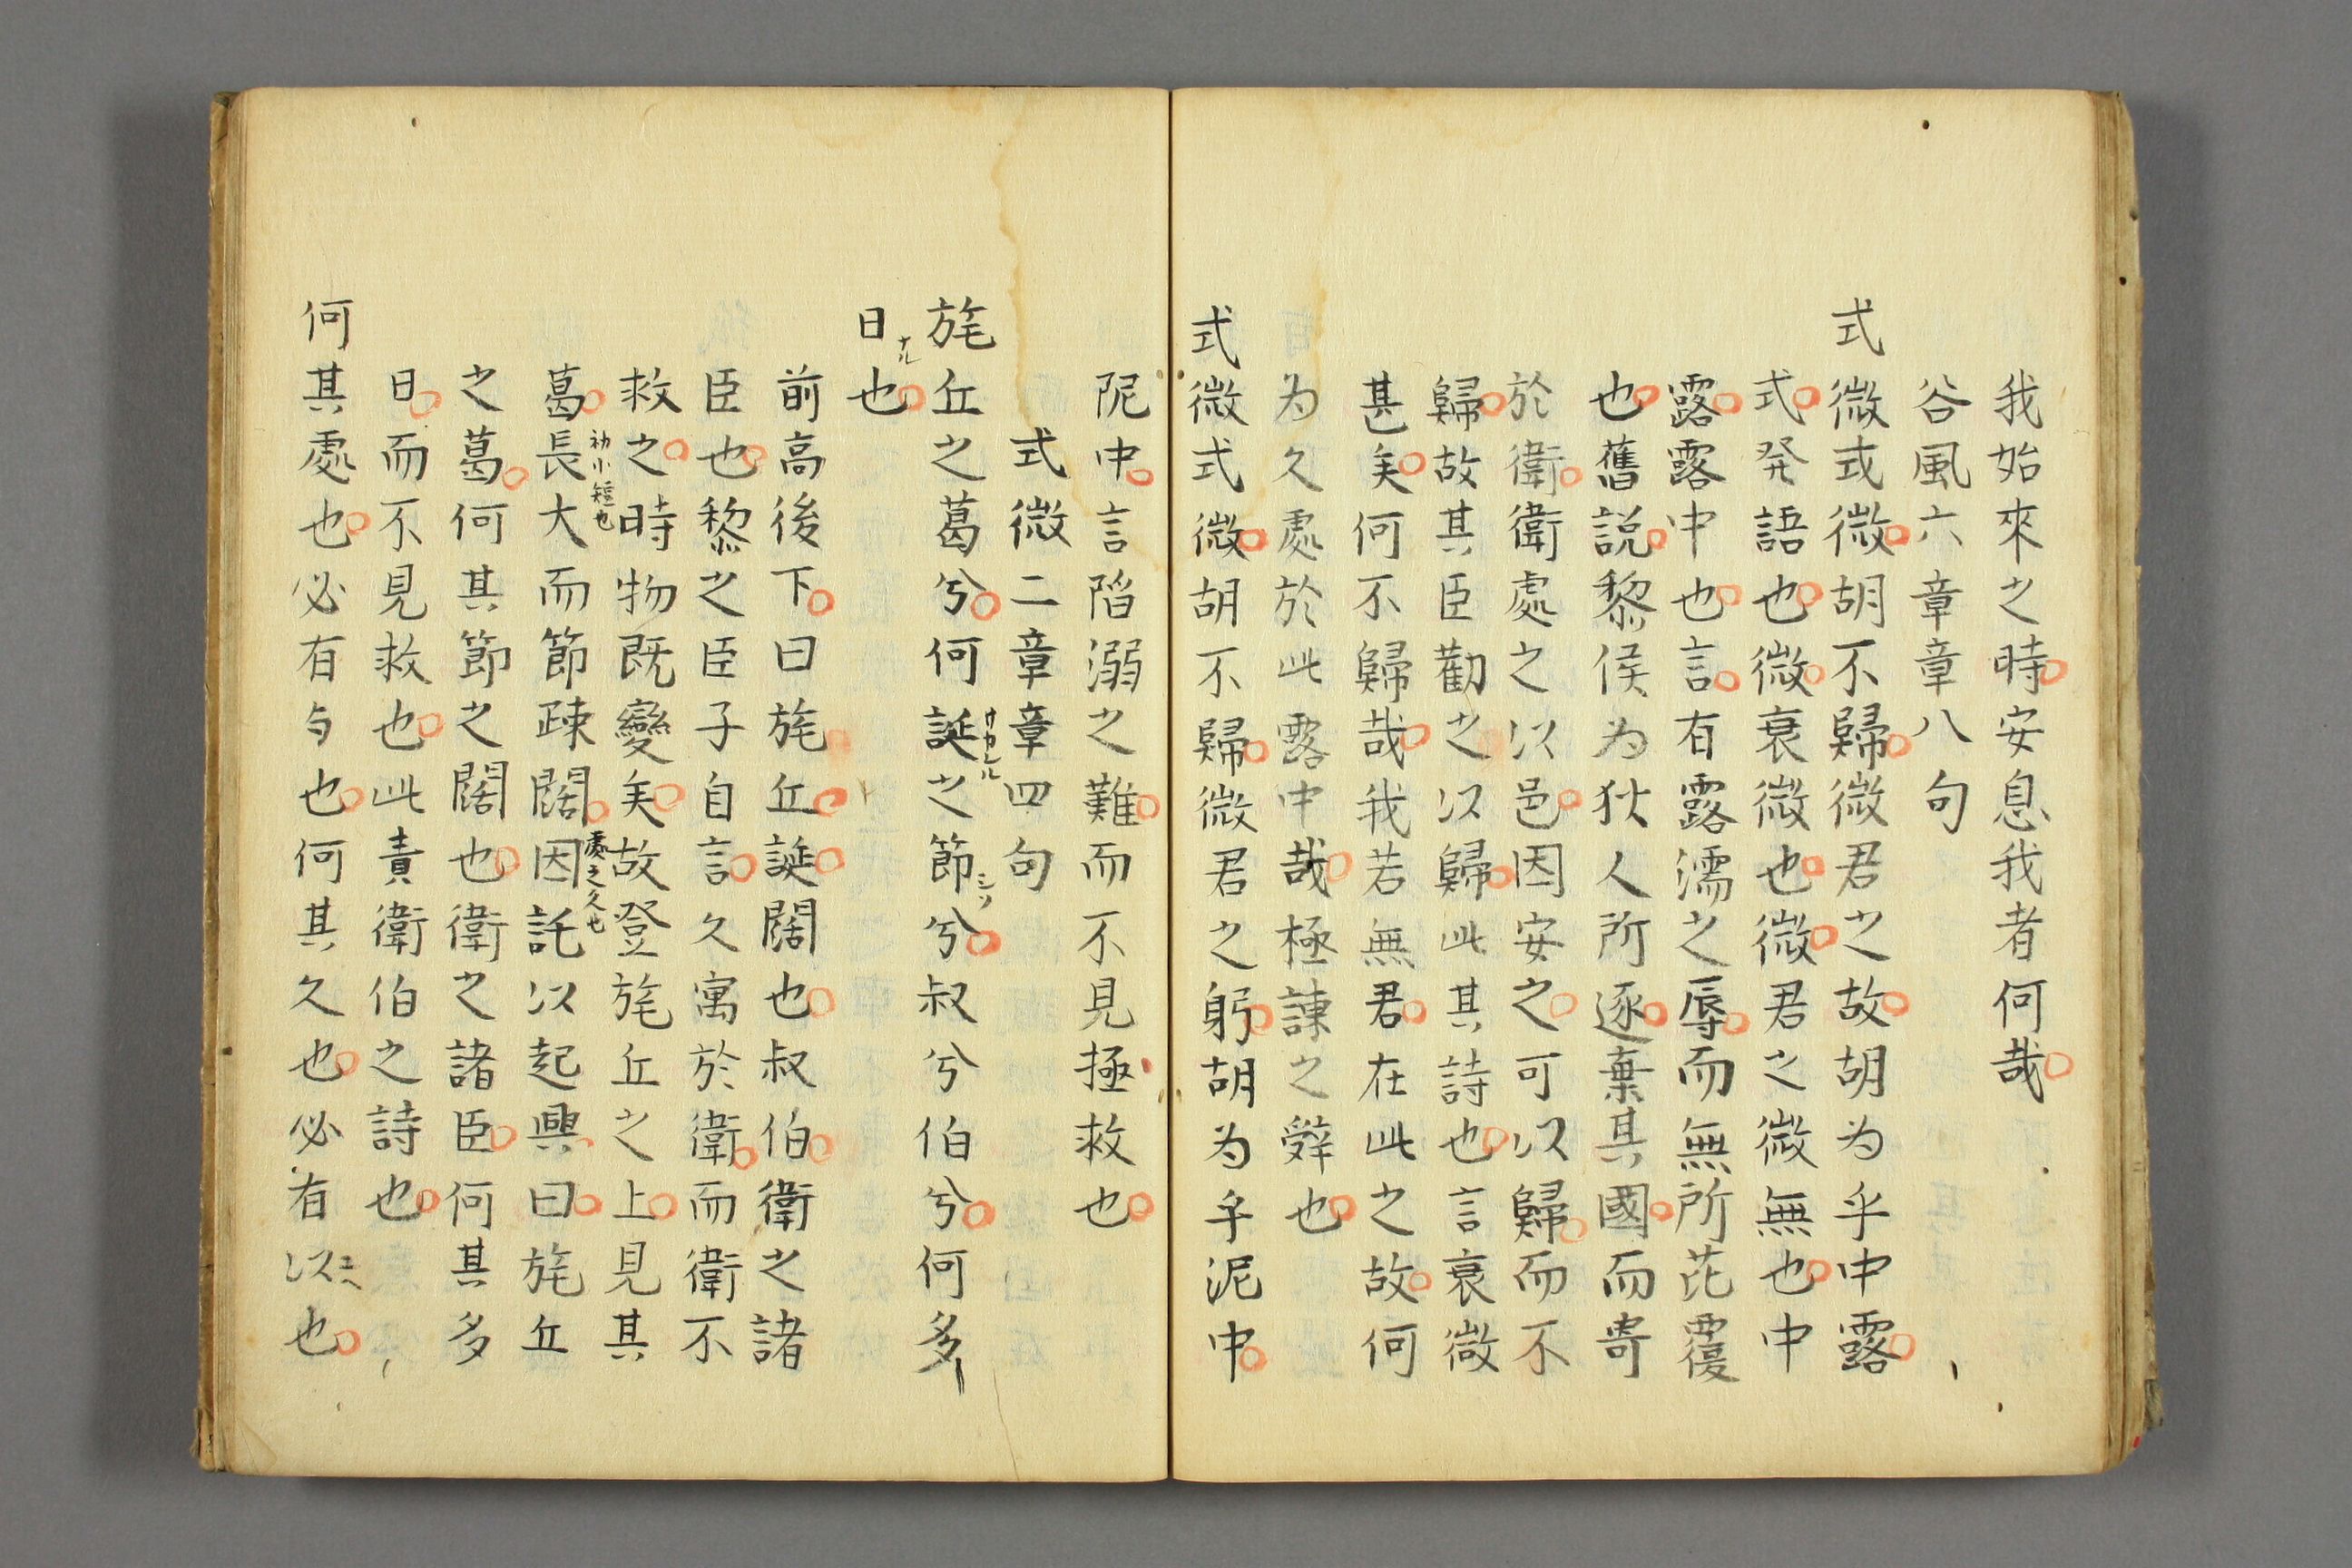 我始來之時安息我者何哉
谷風六章章八句
式微式微胡不歸微君之故胡为乎中露
式発語也微衰微也微君之微無也中
露露中也言有露濡之辱而無所芘覆
也舊説黎侯为狄人所逐棄其國而寄
於衛衛處之以邑因安之可以歸而不
歸故其臣勸之以歸此其詩也言衰微
甚矣何不歸哉我若無君在此之故何
为久處於此露中哉極諌之辤也
式微式微胡不歸微君之躬胡为乎泥中
泥中言陷溺之難而不見拯救也
式微二章章四句
旄丘之葛兮何誕之節兮叔兮伯兮何多
ケカレル
シソ
日也
ナル
前高後下曰旄丘誕闊也叔伯衛之諸
臣也黎之臣子自言久寓於衛而衛不
救之時物既變矣故登旄丘之上見其
葛長大而節疎闊因託以起興曰旄丘
初小短也
處之久也
之葛何其節之闊也衛之諸臣何其多
日而不見救也此責衛伯之詩也
何其處也必有与也何其久也必有以也
ユヘ